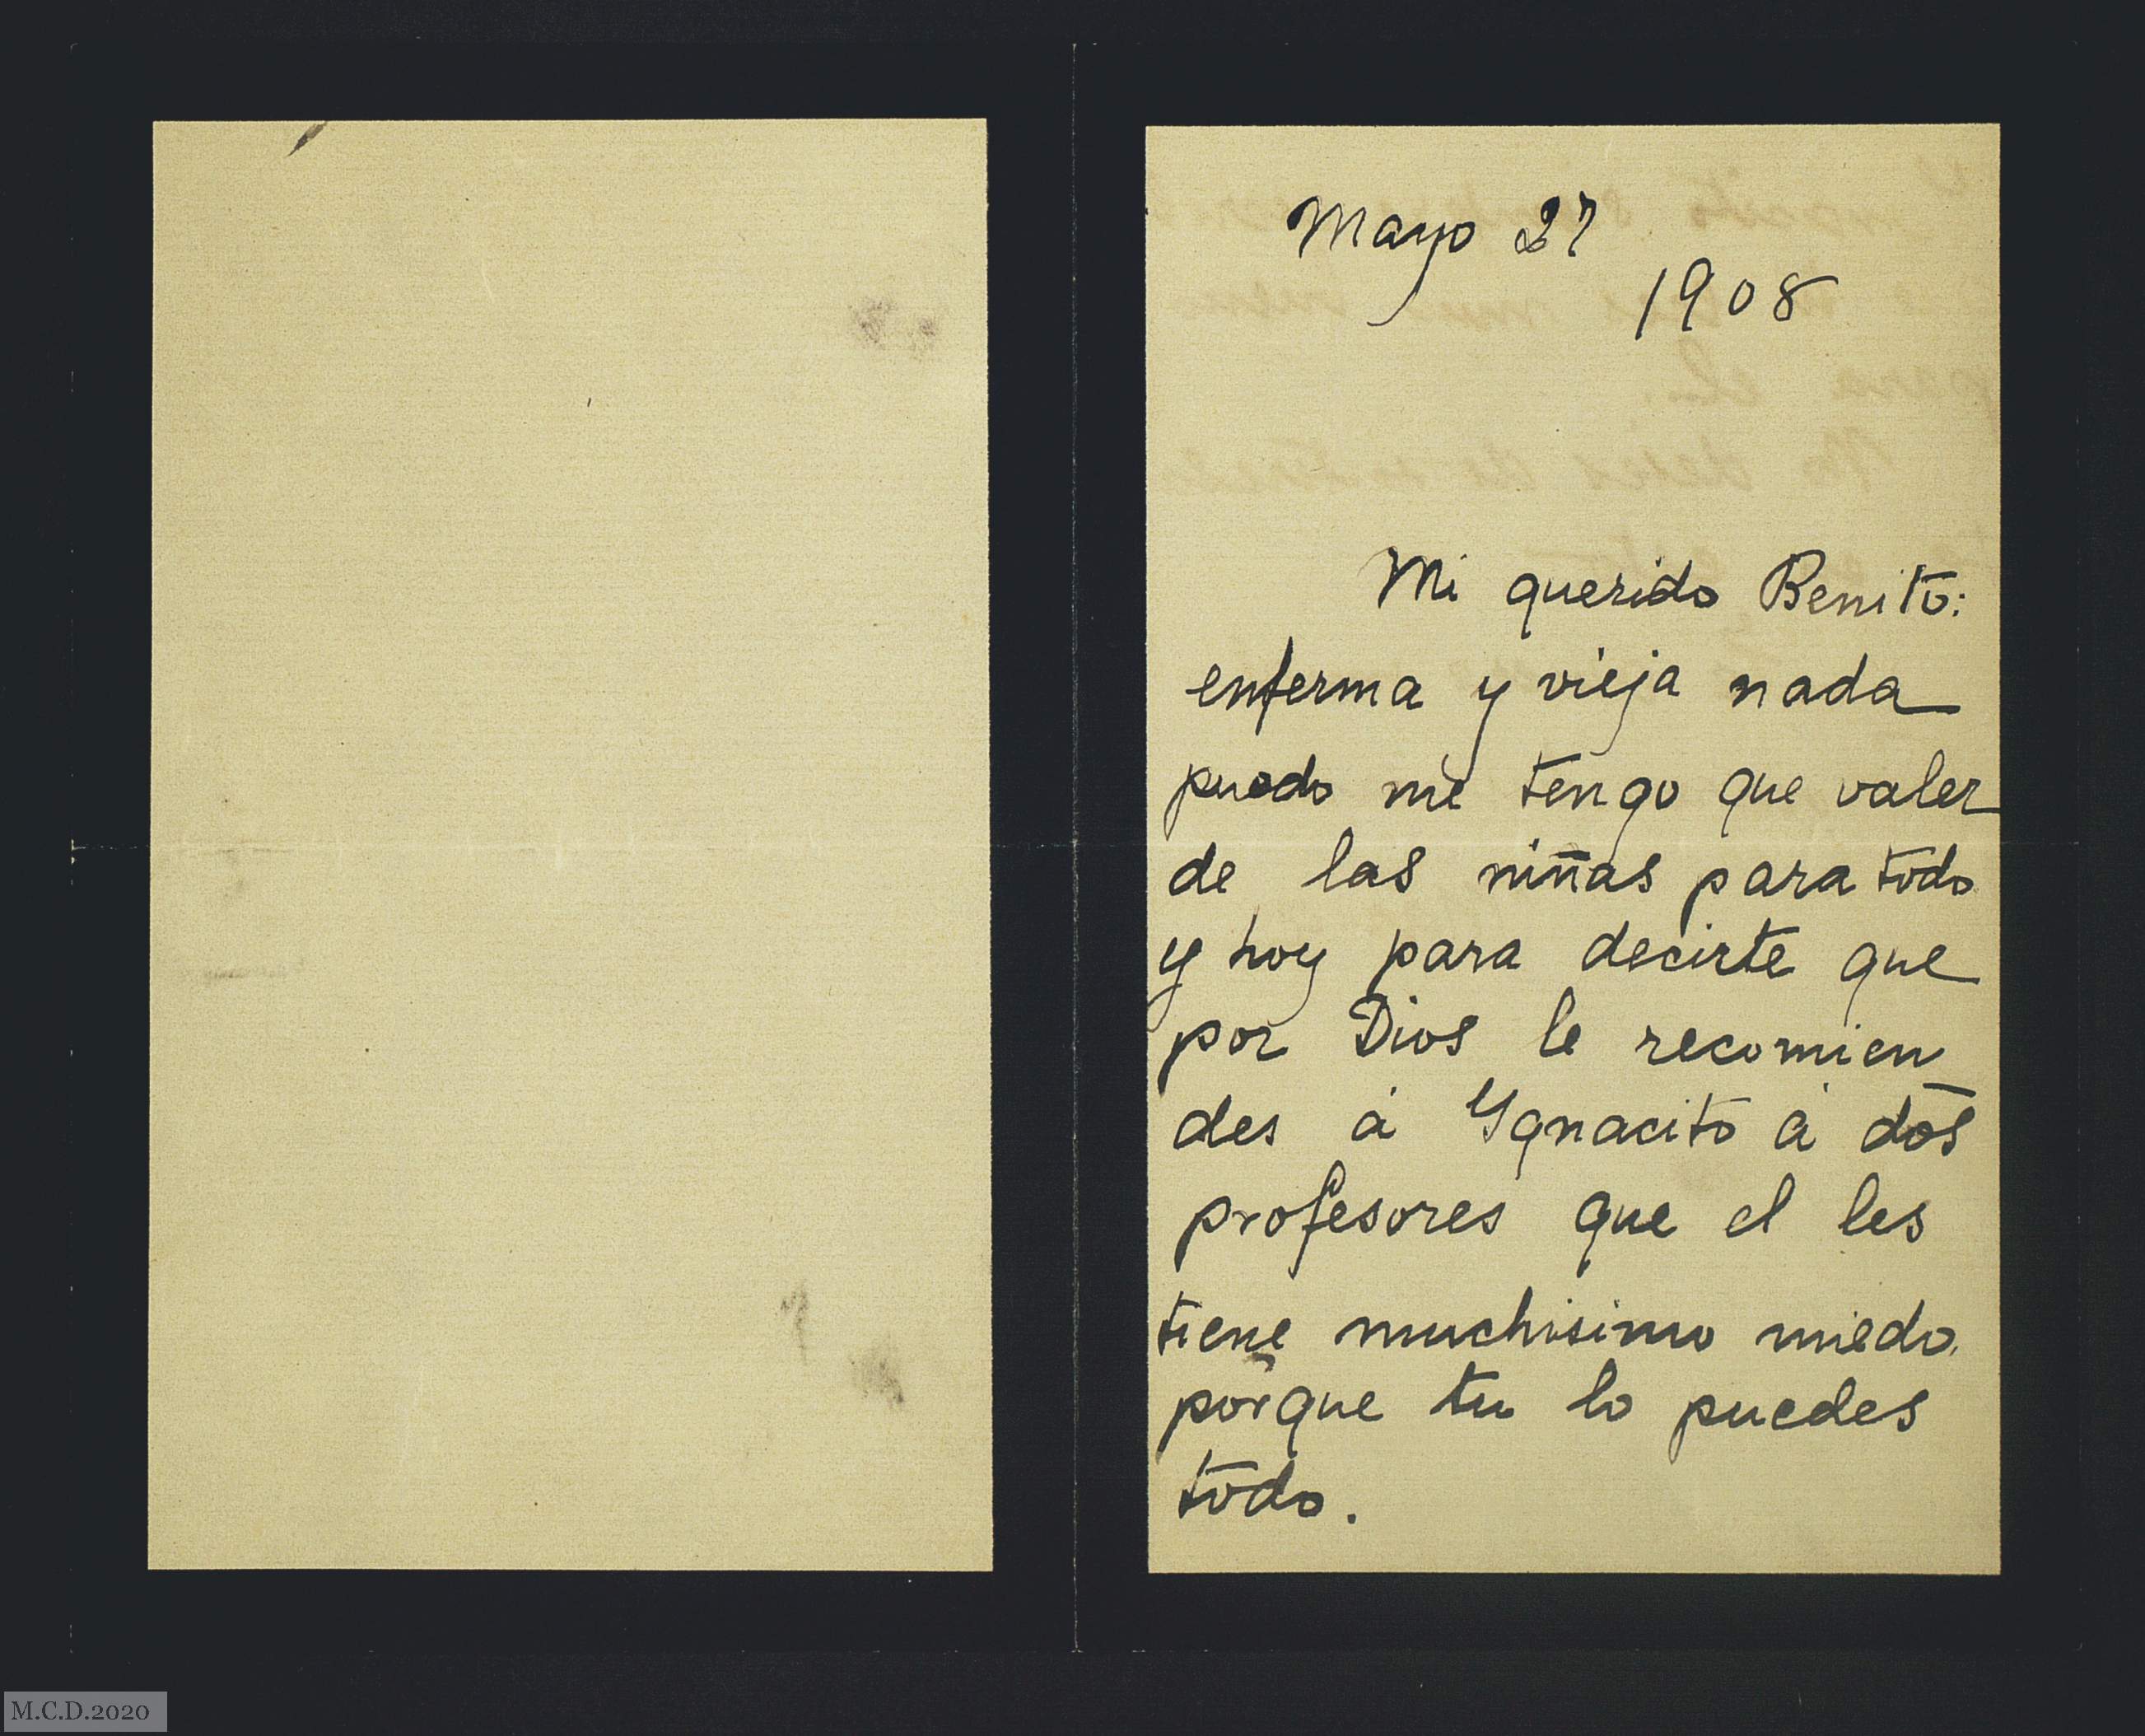 Mayo 27
1908
Mi querido Benito:
enferma y vieja nada
puedo me tengo que valer
de las niñas para todo
y hoy para decirte que
por Dios le recomien
des á Ygnacito á dos
profesores que el les
tiene muchisimo miedo.
porque tu lo puedes
todo.
M.C.D.2020